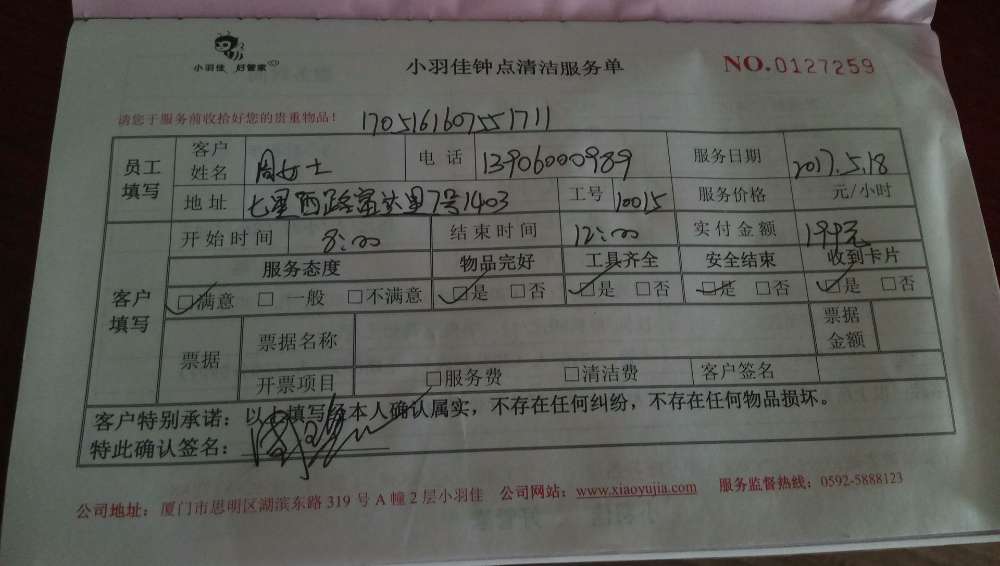 小羽佳 好管家
小羽佳钟点清洁服务单
NO.0127259
请您于服务前收拾好您的贵重物品！
1705161607551711
员工填写 客户姓名 周女士 电话 13906000989 服务日期 2017.5.18
地址 七星西路富达里7号1403 工号 10015 服务价格 元/小时
客户填写 开始时间 8:00 结束时间 12:00 实付金额 199元
服务态度 物品完好 工具齐全 安全结束 收到卡片
□满意 □一般 □不满意 □是 □否 □是 □否 □是 □否 □是 □否
票据 票据名称 票据金额
开票项目 □服务费 □清洁费 客户签名
客户特别承诺：以上填写经本人确认属实，不存在任何纠纷，不存在任何物品损坏。
特此确认签名：
公司地址：厦门市思明区湖滨东路319号A幢2层小羽佳 公司网站：www.xiaoyujia.com 服务监督热线：0592-5888123